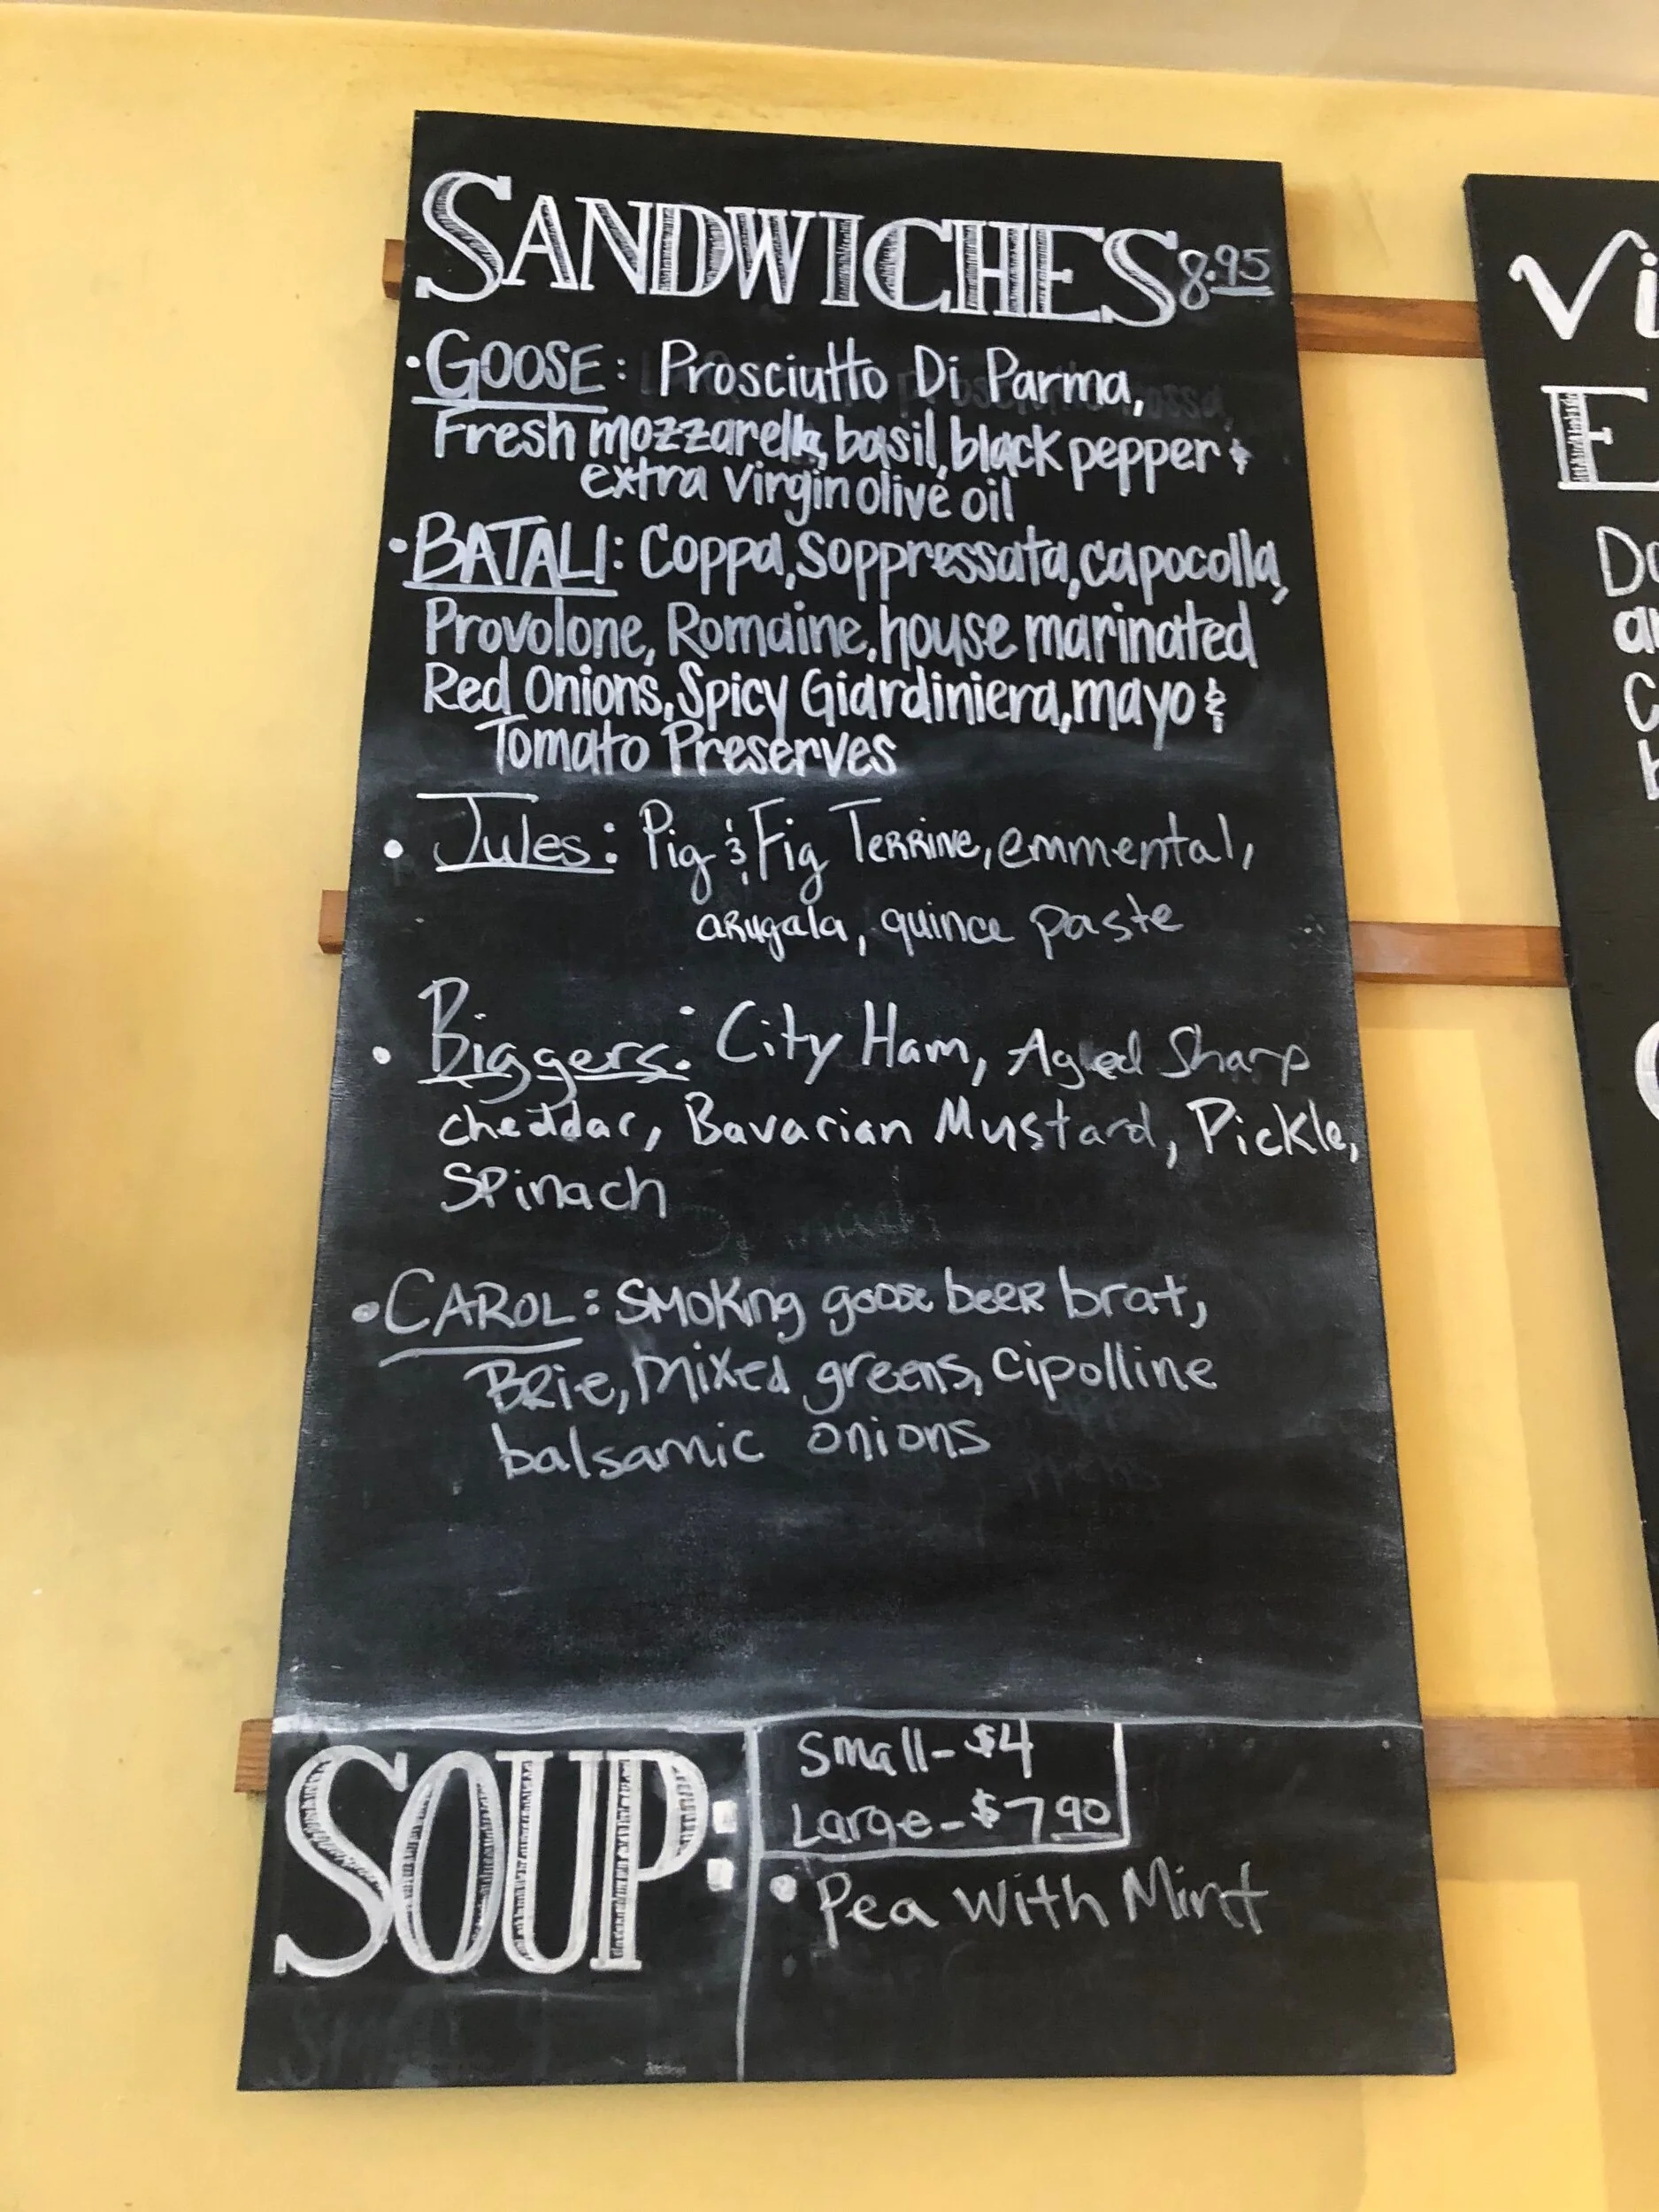 SANDWICHES 8.95
• GOOSE: Prosciutto Di Parma,
Fresh mozzarella, basil, black pepper &
extra virgin olive oil
• BATALI: Coppa, Soppressata, capocolla,
Provolone, Romaine, house marinated
Red Onions, Spicy Giardiniera, mayo &
Tomato Preserves
• Jules: Pig & Fig Terrine, emmental,
arugala, quince paste
• Biggers: City Ham, Aged Sharp
cheddar, Bavarian Mustard, Pickle,
Spinach
• CAROL: Smoking goose beer brat,
Brie, mixed greens, cipolline
balsamic onions
SOUP:
Small - $4
Large - $7.90
• Pea with Mint
Vi
E